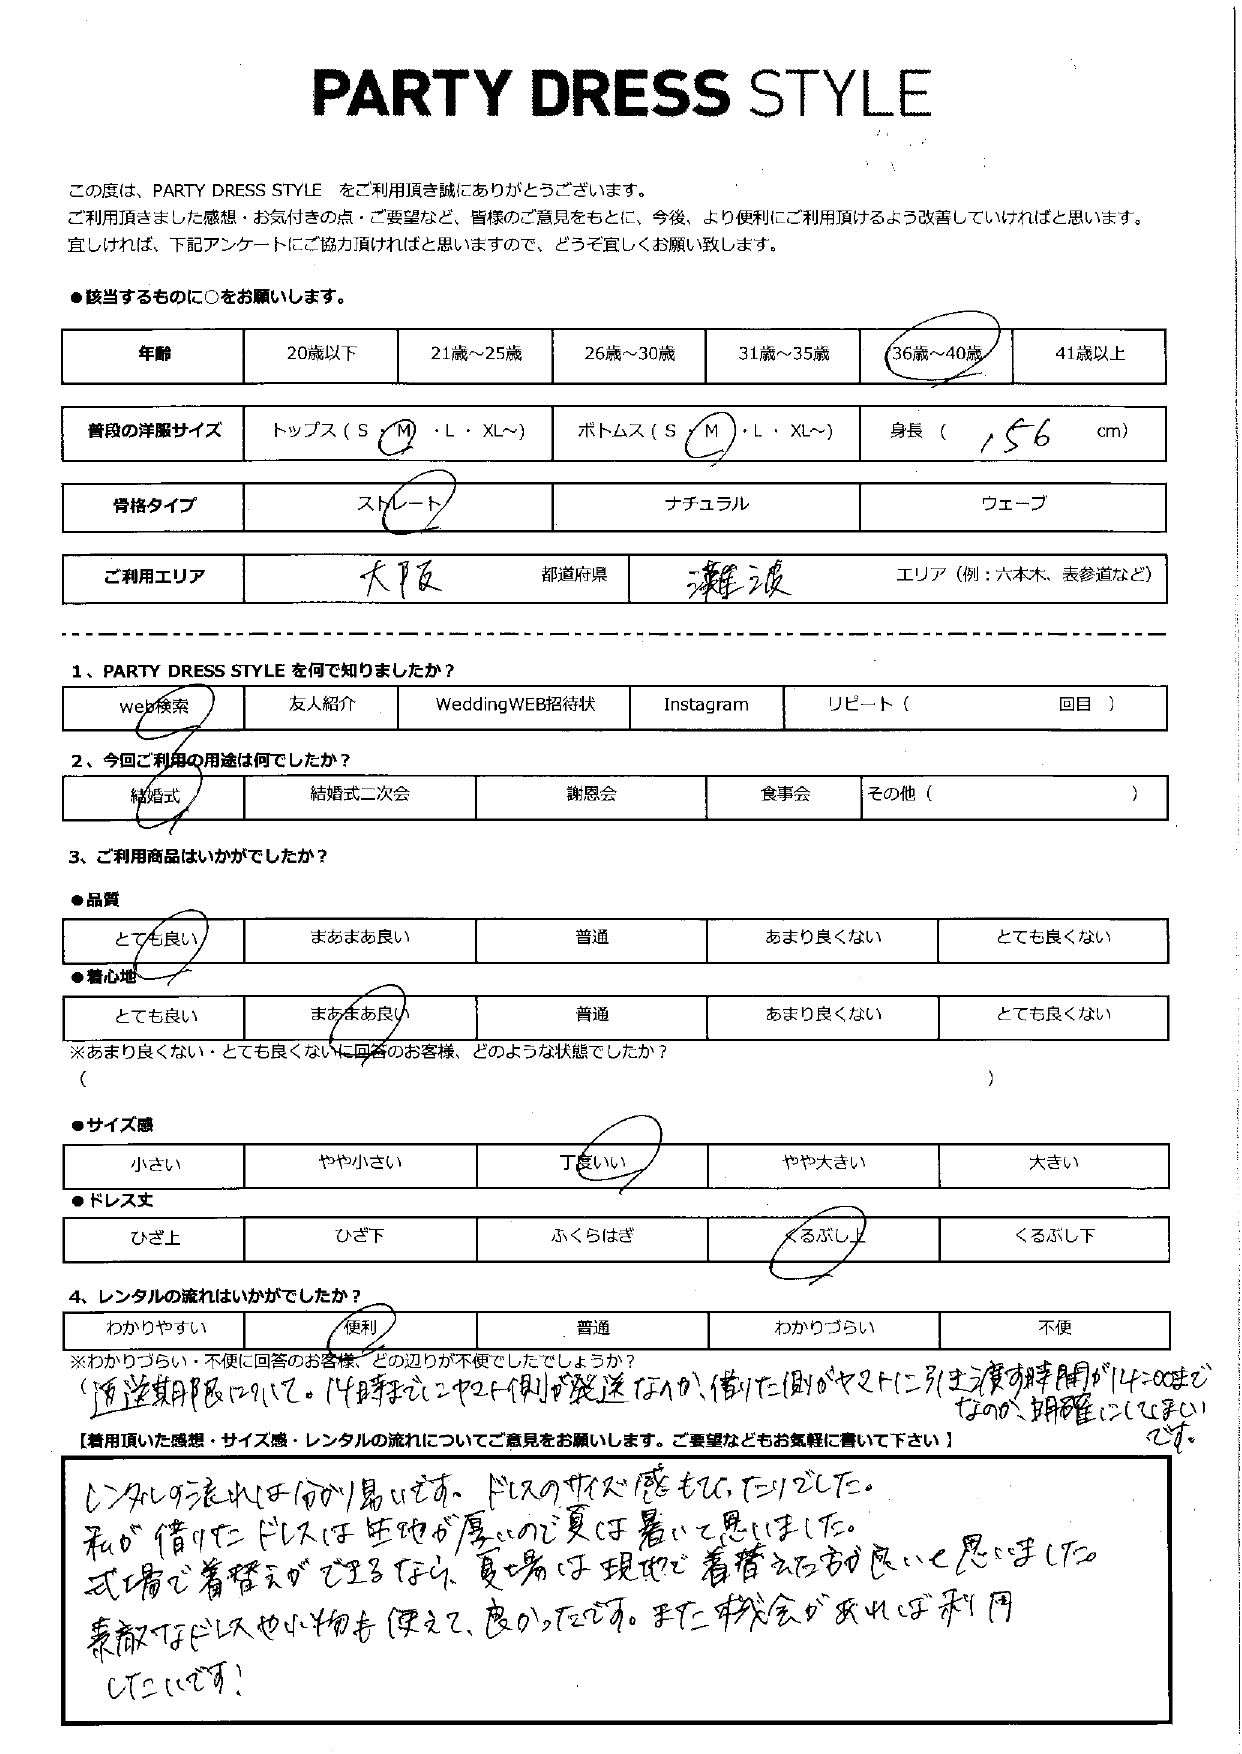 PARTY DRESS STYLE
この度は、PARTY DRESS STYLE をご利用頂き誠にありがとうございます。
ご利用頂きました感想・お気付きの点・ご要望など、皆様のご意見をもとに、今後、より便利にご利用頂けるよう改善していければと思います。
宜しければ、下記アンケートにご協力頂ければと思いますので、どうぞ宜しくお願い致します。
●該当するものに○をお願いします。
年齢 20歳以下 21歳～25歳 26歳～30歳 31歳～35歳 36歳～40歳 41歳以上
普段の洋服サイズ トップス ( S ・ M ・ L ・ XL～) ボトムス ( S ・ M ・ L ・ XL～) 身長 ( 156 cm)
骨格タイプ ストレート ナチュラル ウェーブ
ご利用エリア 大阪 都道府県 灘波 エリア（例：六本木、表参道など）
1、PARTY DRESS STYLE を何で知りましたか？
web検索 友人紹介 WeddingWEB招待状 Instagram リピート（ 回目 ）
2、今回ご利用の用途は何でしたか？
結婚式 結婚式二次会 謝恩会 食事会 その他（ ）
3、ご利用商品はいかがでしたか？
●品質
とても良い まあまあ良い 普通 あまり良くない とても良くない
●着心地
とても良い まあまあ良い 普通 あまり良くない とても良くない
※あまり良くない・とても良くないに回答のお客様、どのような状態でしたか？
（ ）
●サイズ感
小さい やや小さい 丁度いい やや大きい 大きい
●ドレス丈
ひざ上 ひざ下 ふくらはぎ くるぶし上 くるぶし下
4、レンタルの流れはいかがでしたか？
わかりやすい 便利 普通 わかりづらい 不便
※わかりづらい・不便に回答のお客様、どの辺りが不便でしたでしょうか？
（返送期限について。14時までにヤマト側が発送なのか、借りた側がヤマトに引き渡す時間が14:00まで
なのか、明確にしてほしい
です。
【着用頂いた感想・サイズ感・レンタルの流れについてご意見をお願いします。ご要望などもお気軽に書いて下さい】
レンタルの流れは分かり易いです。ドレスのサイズ感もぴったりでした。
私が借りたドレスは生地が厚いので夏は暑いと思いました。
式場で着替えができるなら、夏場は現地で着替えた方が良いと思いました。
素敵なドレスや小物も使えて、良かったです。また機会があれば利用
したいです！